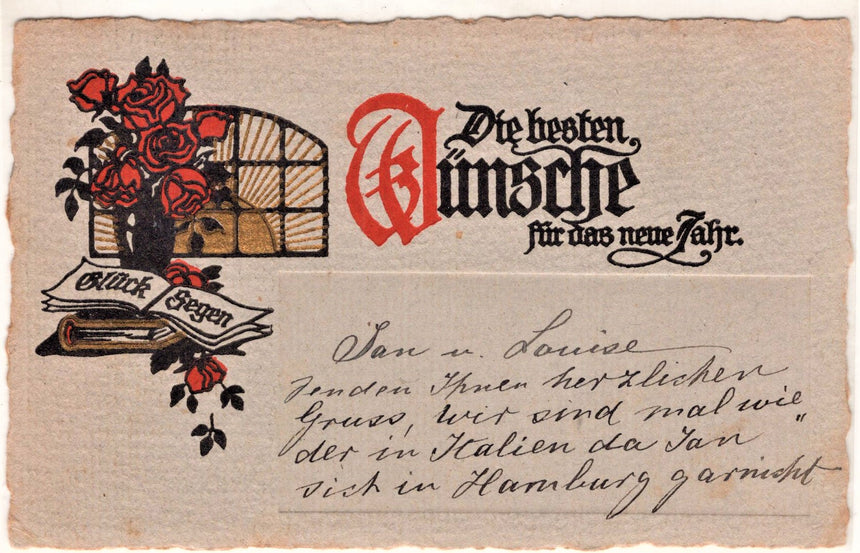 Die besten
Wünsche
für das neue Jahr.
Glück
Segen
Jan u. Louise
senden Ihnen herzlichen
Gruss, wir sind mal wie„
der in Italien da Jan
sich in Hamburg garnicht